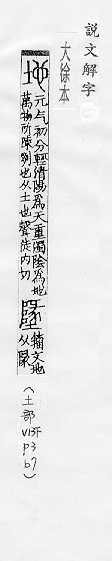 説文解字
大徐本
地
元气初分輕清陽爲天重濁陰爲地
萬物所陳劉也从土也聲徒内切
墬
籒文地
从隊
(土部
V13下
P3
b7)